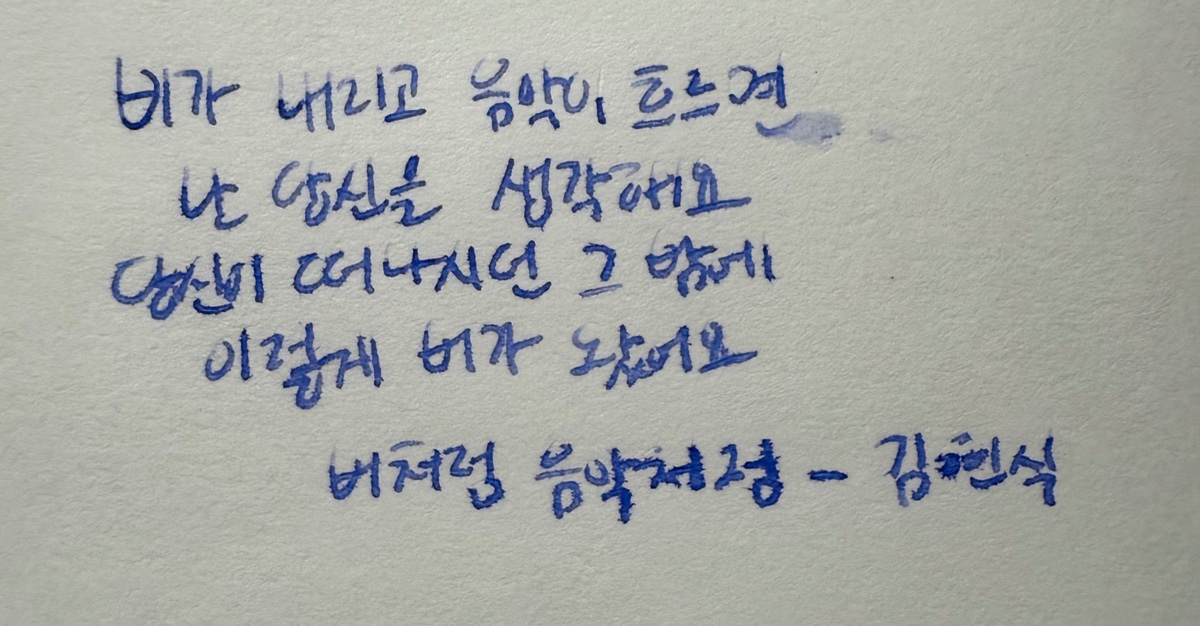 비가 내리고 음악이 흐르면
난 당신을 생각해요
당신이 떠나시던 그 밤에
이렇게 비가 왔어요
비처럼 음악처럼 - 김현식